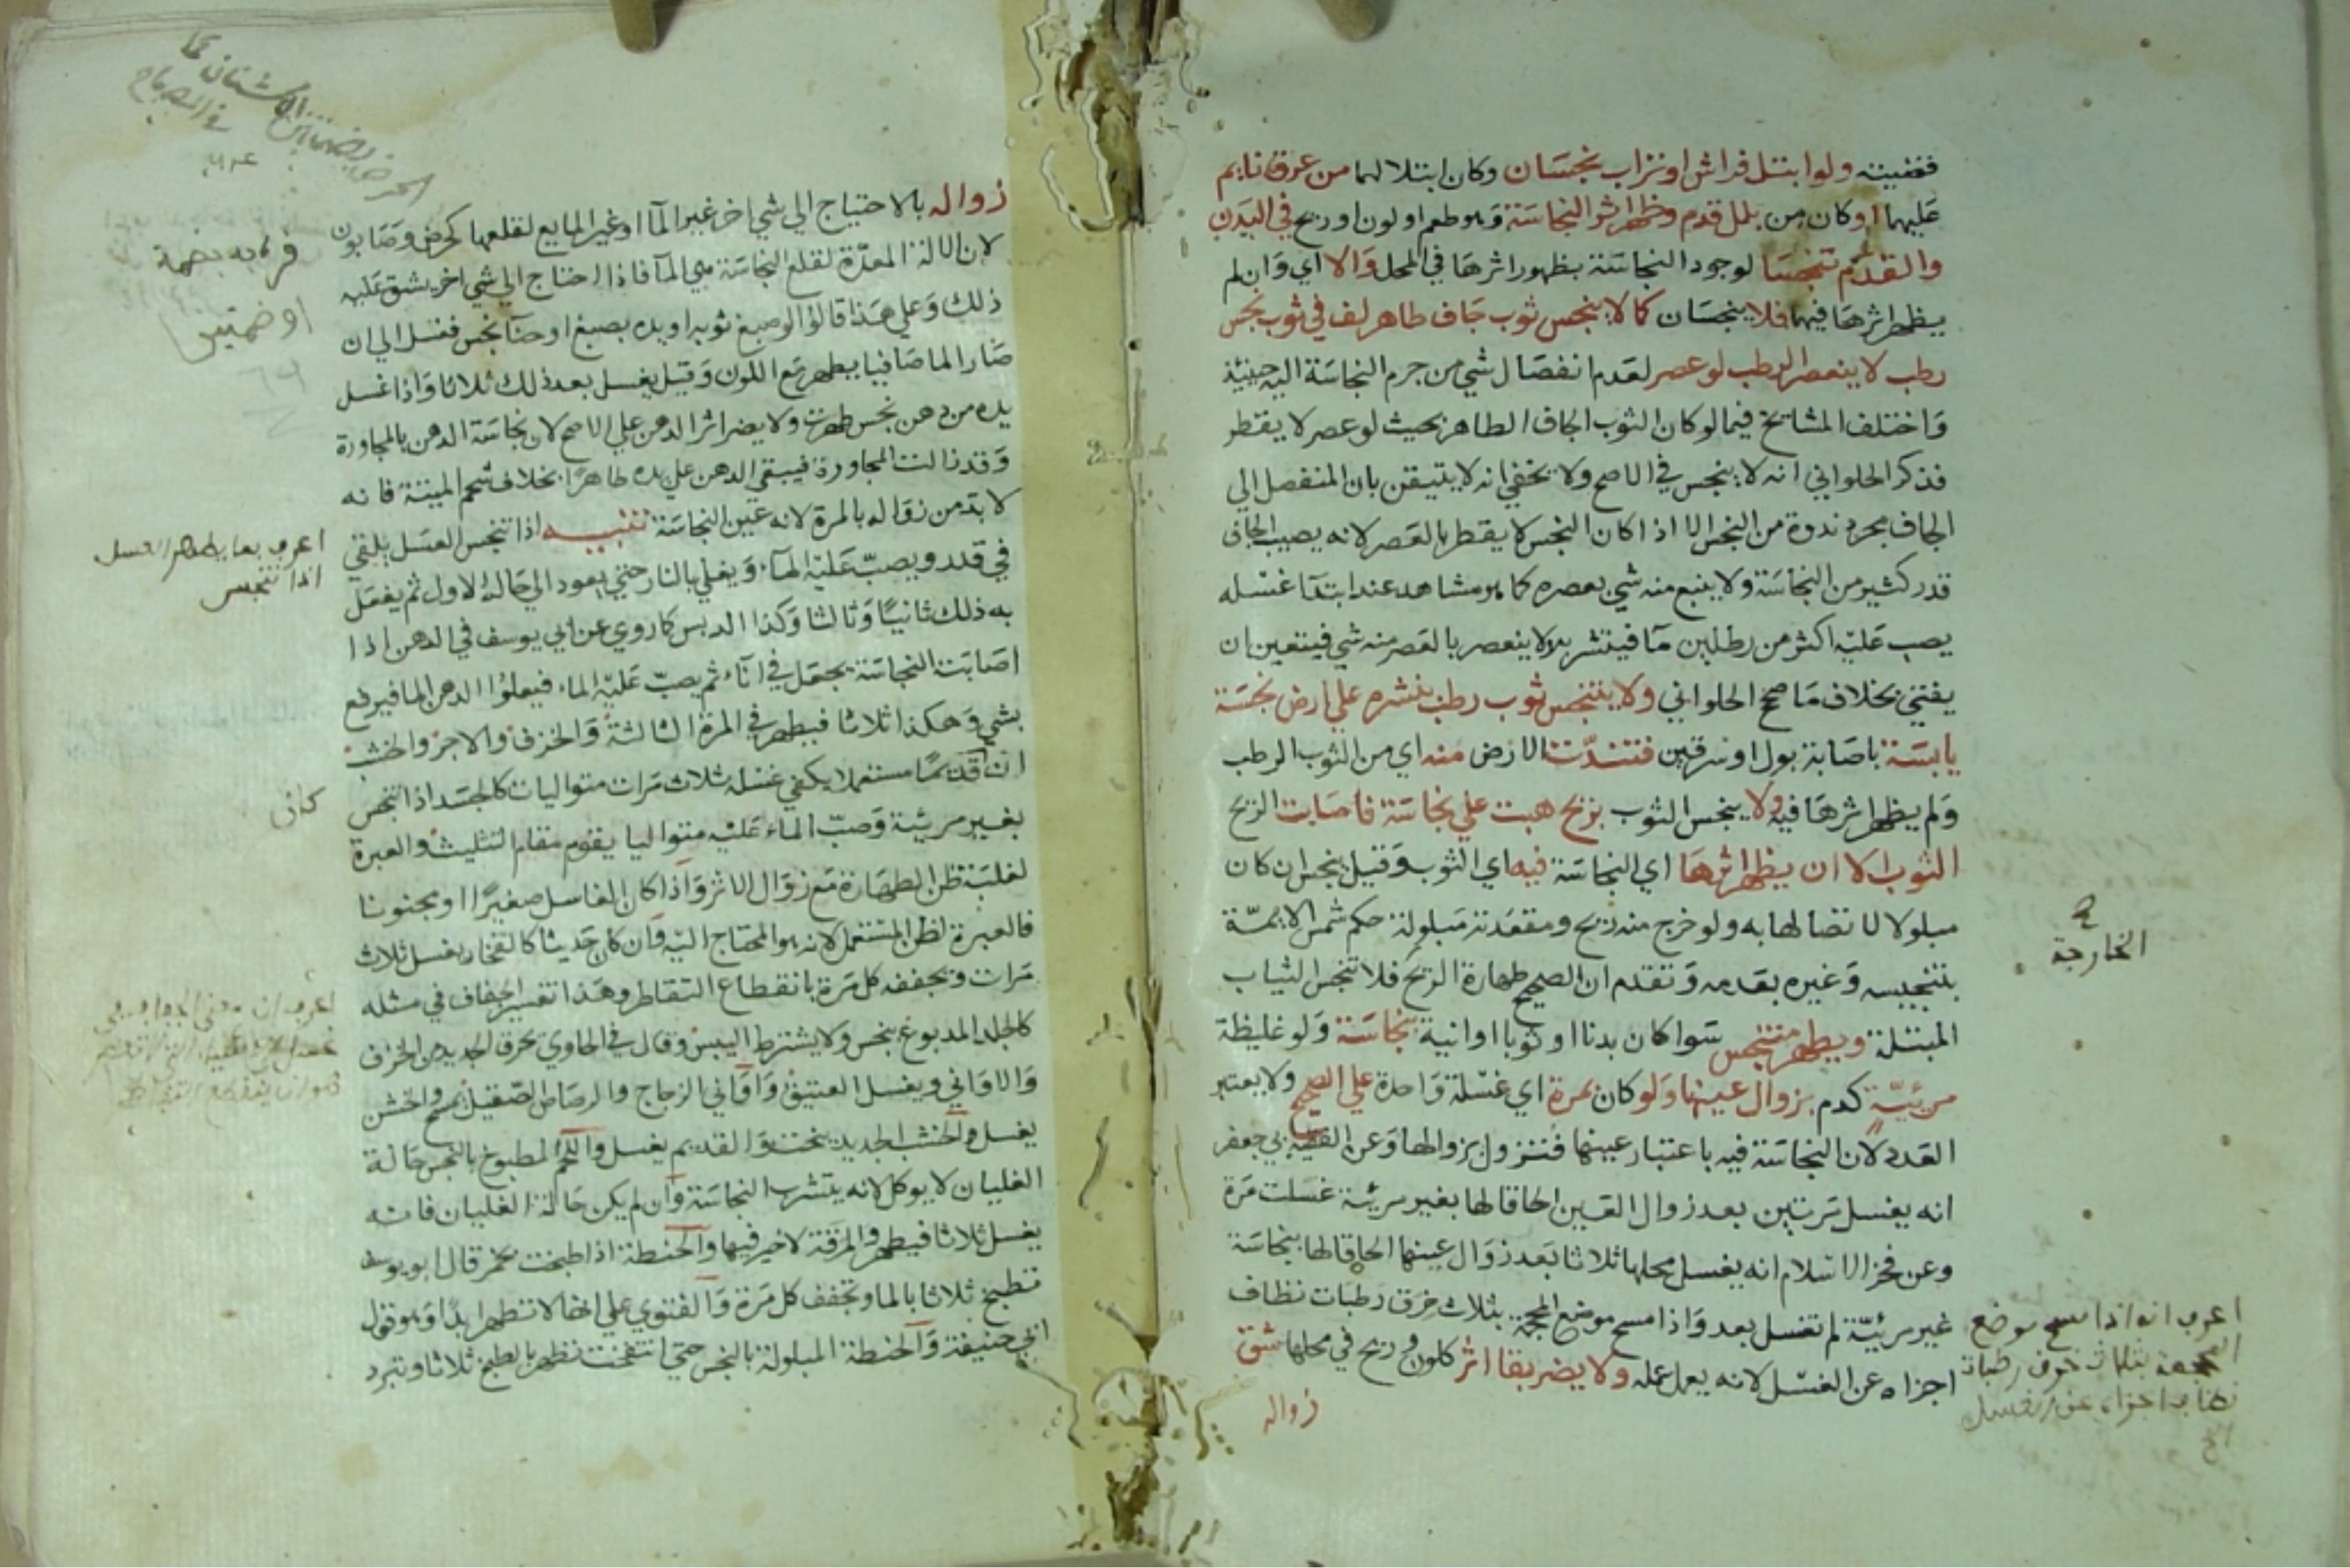 فعفيته ولو ابتل فراش او تراب نجسان وكان ابتلالهما من عرق نايم
عليهما او كان من بلل قدم وظهر اثر النجاسة وهو طعم او لون او ريح في البدن
والقدم تنجسا لوجود النجاسة بظهور اثرها في المحل والا اي وان لم
يظهر اثرها فيهما فلا ينجسان كما لا ينجس ثوب جاف طاهر لف في ثوب نجس
رطب لا ينعصر الرطب لو عصر لعدم انفصال شي من جرم النجاسة اليه حينئذ
واختلف المشائخ فيما لو كان الثوب الجاف الطاهر بحيث لو عصر لا يقطر
فذكر الحلواني انه لا ينجس في الاصح ولا يخفي انه لا يتيقن بان المنفصل الي
الجاف مجرد ندوة من النجس الا اذا كان النجس لا يقطر بالعصر لانه يصيب الجاف
قدر كثير من النجاسة ولا ينبع منه شي بعصره كما هو مشاهد عند ابتدآ غسله
يصب عليه اكثر من رطلين مآ فينتشر بلا لا ينعصر بالعصر منه شي فيتعين ان
يفتي بخلاف ما صحح الحلواني ولا يتنجس ثوب رطب بنشره علي ارض نجسة
يابسة باصابة بول او سرقين فتندت الارض منه اي من الثوب الرطب
ولم يظهر اثرها فيه ولا ينجس الثوب بريح هبت علي نجاسة فاصابت الريح
الثوب الا ان يظهر اثرها اي النجاسة فيه اي الثوب وقيل ينجس ان كان
مبلولا لاتصالها به ولو خرج منه ريح ومقعدته مبلولة حكم شمس الايمة
بتنجيسه وغيره بعدمه وتقدم ان الصحيح طهارة الريح فلا تنجس الثياب
المبتلة ويطهر متنجس سوا كان بدنا او ثوبا او انية بنجاسة ولو غليظة
مرئية كدم بزوال عينها ولو كان بمرة اي غسلة واحدة علي الصحيح ولا يعتبر
العدد لان النجاسة فيه باعتبار عينها فتزول بزوالها وعن الفقيه ابي جعفر
انه يغسل مرتين بعد زوال العين الحاقا لها بغير مرئية غسلت مرة
وعن فخر الاسلام انه يغسل محلها ثلاثا بعد زوال عينها الحاقا لها بنجاسة
غير مرئية لم تغسل بعد واذا مسح موضع المحجمة بثلاث خرق رطبات نظاف
اجزاه عن الغسل لانه يعمل عمله ولا يضر بقا اثر كلون وريح في محلها شق
زواله
الخارجة
اعرف انه اذا مسح موضع
المحجمة بثلاث خرق رطبات
نظاف اجزاه عن الغسل
زواله بالاحتياج الي شي اخر غير المآ او غير المايع لقلعها كحرض وصابون
لان الالة المعدة لقلع النجاسة هي المآ فاذا احتاج الي شي اخر يشق عليه
ذلك وعلي هذا قالوا لو صبغ ثوبه او يده بصبغ او حنآ نجس فغسل الي ان
صار الما صافيا يطهر مع اللون وقيل يغسل بعد ذلك ثلاثا واذا غسل
يده من دهن نجس طهرت ولا يضر اثر الدهن علي الاصح لان نجاسة الدهن بالمجاورة
وقد زالت المجاورة فيبقي الدهن علي يده طاهرا بخلاف شحم الميتة فانه
لا بد من زواله بالمرة لانه عين النجاسة تنبيه اذا تنجس العسل يلقي
في قدر ويصب عليه المآء ويغلي بالنار حتي يعود الي حاله الاول ثم يفعل
به ذلك ثانيا وثالثا وكذا الدبس كما روي عن ابي يوسف في الدهن اذا
اصابت النجاسة يجعل في انآء ثم يصب عليه الماء فيعلوا الدهن الما فيرفع
بشي وهكذا ثلاثا فيطهر في المرة الثالثة والخزف والاجر والخشب
ان قديما مستعملا يكفي غسله ثلاث مرات متواليات كالجسد اذا تنجس
بغير مريئة وصب الماء عليه متواليا يقوم مقام التثليث والعبرة
لغلبة ظن الطهارة مع زوال الاثر واذا كان الغاسل صغيرا او مجنونا
فالعبرة لظن المستعمل لانه هو المحتاج اليه وان كان حديثا كالفخار يغسل ثلاث
مرات وتجففه كل مرة بانقطاع التقاطر وهذا تفسير الجفاف في مثله
كالجلد المدبوغ بنجس ولا يشترط اليبس وقال في الحاوي يحرق الجديد من الخزف
والاواني ويغسل العتيق واواني الزجاج والرصاص الصقيل يمسح والخشن
يغسل والخشب الجديد ينحت والقديم يغسل واللحم المطبوخ بالنجس حالة
الغليان لا يوكل لانه يتشرب النجاسة وان لم يكن حالة الغليان فانه
يغسل ثلاثا فيطهر والمرقة لا خير فيها والحنطة اذا طبخت بخمر قال ابو يوسف
تطبخ ثلاثا بالما وتجفف كل مرة والفتوي علي انها لا تطهر ابدا وهو قول
ابي حنيفة والحنطة المبلولة بالنجس حتي انتفخت تطهر بالطبخ ثلاثا وتبرد
او ضمتين
اعرف بما يطهر العسل
اذا تنجس
كاف